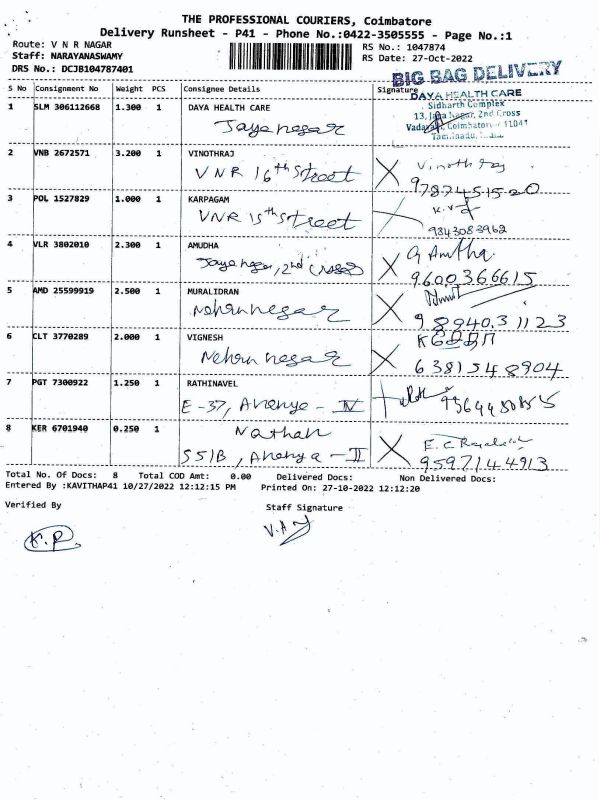 THE PROFESSIONAL COURIERS, Coimbatore
Delivery Runsheet - P41 - Phone No.:0422-3505555 - Page No.:1
Route: V N R NAGAR
RS No.: 1047874
Staff: NARAYANASWAMY
RS Date: 27-Oct-2022
DRS No.: DCJB104787401
BIG BAG DELIVERY
S No Consignment No Weight PCS Consignee Details Signature
DAYA HEALTH CARE
Sidharth Complex
13, Jaya Nagar, 2nd Cross
1 SLM 306112668 1.300 1 DAYA HEALTH CARE
Jaya nagar
2 VNB 2672571 3.200 1 VINOTHRAJ
VNR 16th Street
Vinoth raj
9787451520
3 POL 1527829 1.000 1 KARPAGAM
VNR 15th Street
9843083962
4 VLR 3802010 2.300 1 AMUDHA
Jaya nagar, 2nd
G Amtha
9600366615
5 AMD 25599919 2.500 1 MURALIDRAN
Nehru nagar
9894031123
6 CLT 3770289 2.000 1 VIGNESH
Nehru nagar
6381548904
7 PGT 7300922 1.250 1 RATHINAVEL
E-37, Avenye - IV
8 KER 6701940 0.250 1 Nathan
551B, Avenya - II
9597144913
Total No. Of Docs: 8 Total COD Amt: 0.00 Delivered Docs: Non Delivered Docs:
Entered By :KAVITHAP41 10/27/2022 12:12:15 PM Printed On: 27-10-2022 12:12:20
Verified By
Staff Signature
K.P.
V.A